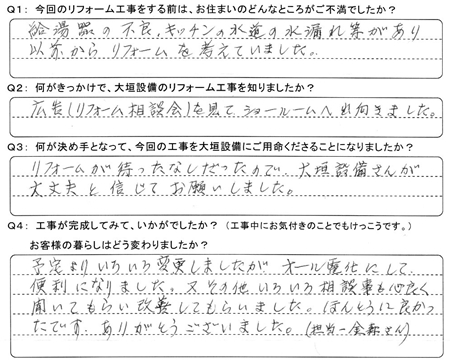 Q1: 今回のリフォーム工事をする前は、お住まいのどんなところがご不満でしたか？
給湯器の不良、キッチンの水道の水漏れ等があり
以前からリフォームを考えていました。
Q2: 何がきっかけで、大垣設備のリフォーム工事を知りましたか？
広告(リフォーム相談会)を見てショールームへ出向きました。
Q3: 何が決め手となって、今回の工事を大垣設備にご用命くださることになりましたか？
リフォームが待ったなしだったので、大垣設備さんが
大丈夫と信じてお願いしました。
Q4: 工事が完成してみて、いかがでしたか？（工事中にお気付きのことでもけっこうです。）
お客様の暮らしはどう変わりましたか？
予定よりいろいろ変更しましたがオール電化にして
便利になりました。又その他いろいろ相談事も心良く
聞いてもらい改善してもらいました。ほんとうに良かっ
たです。ありがとうございました。(担当ー金森さん)